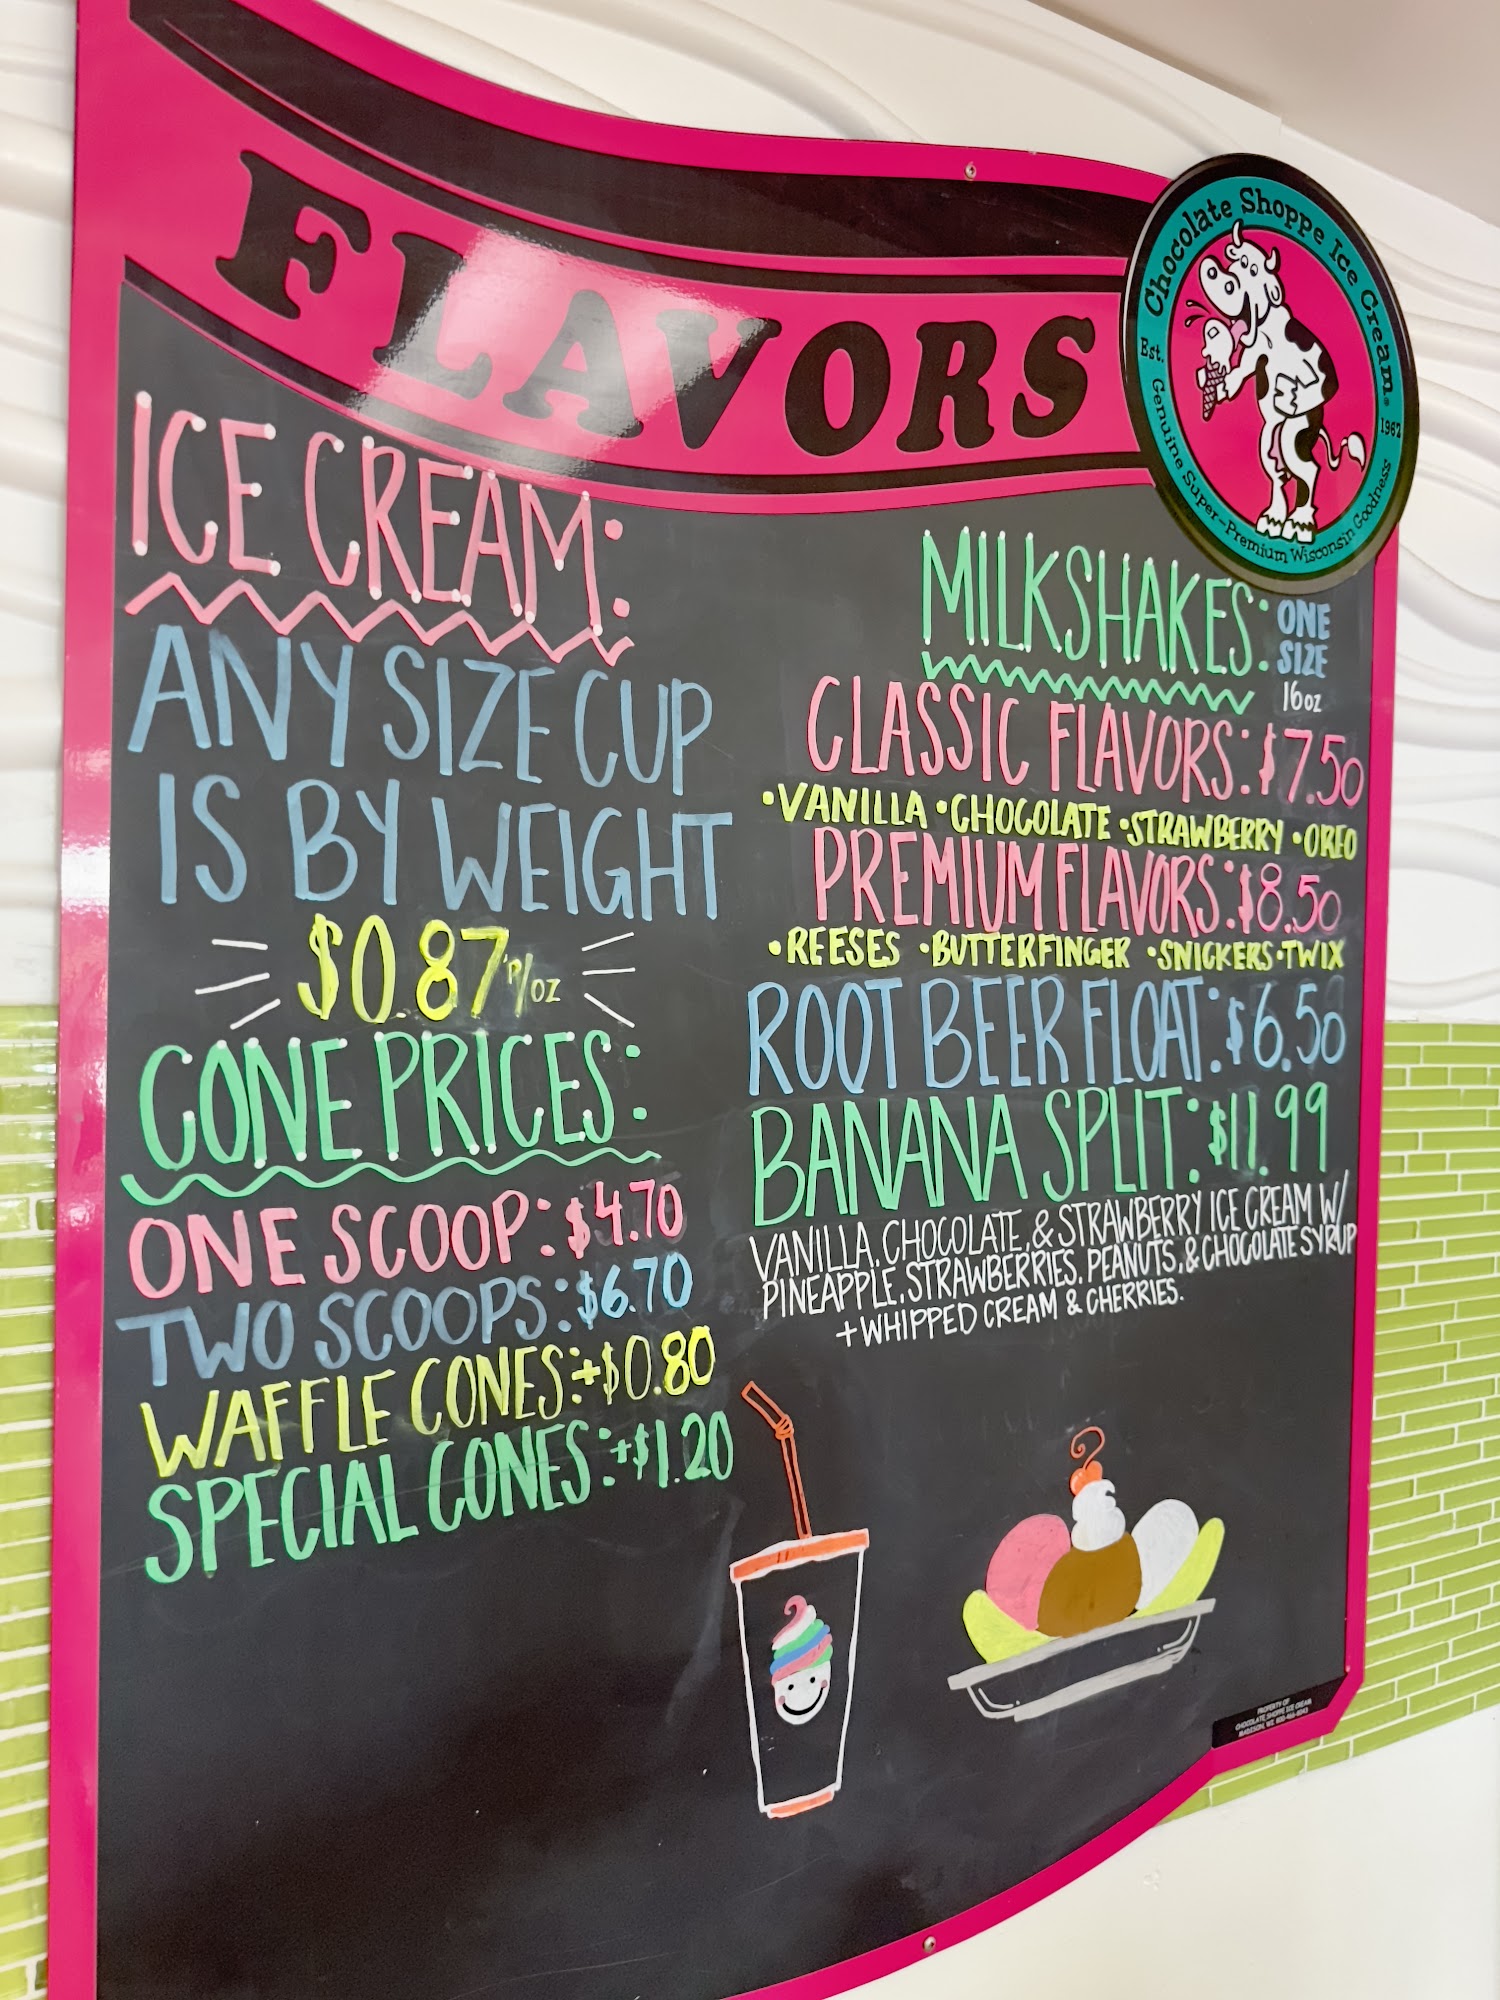 FLAVORS
Chocolate Shoppe Ice Cream®
Est. 1962
Genuine Super-Premium Wisconsin Goodness
ICE CREAM:
ANY SIZE CUP
IS BY WEIGHT
$0.87 P/OZ
CONE PRICES:
ONE SCOOP: $4.70
TWO SCOOPS: $6.70
WAFFLE CONES: +$0.80
SPECIAL CONES: +$1.20
MILKSHAKES: ONE
SIZE
16oz
CLASSIC FLAVORS: $7.50
•VANILLA •CHOCOLATE •STRAWBERRY •OREO
PREMIUM FLAVORS: $8.50
•REESES •BUTTERFINGER •SNICKERS •TWIX
ROOT BEER FLOAT: $6.50
BANANA SPLIT: $11.99
VANILLA, CHOCOLATE, & STRAWBERRY ICE CREAM W/
PINEAPPLE, STRAWBERRIES, PEANUTS, & CHOCOLATE SYRUP
+ WHIPPED CREAM & CHERRIES.
PROPERTY OF
CHOCOLATE SHOPPE ICE CREAM
MADISON, WI.